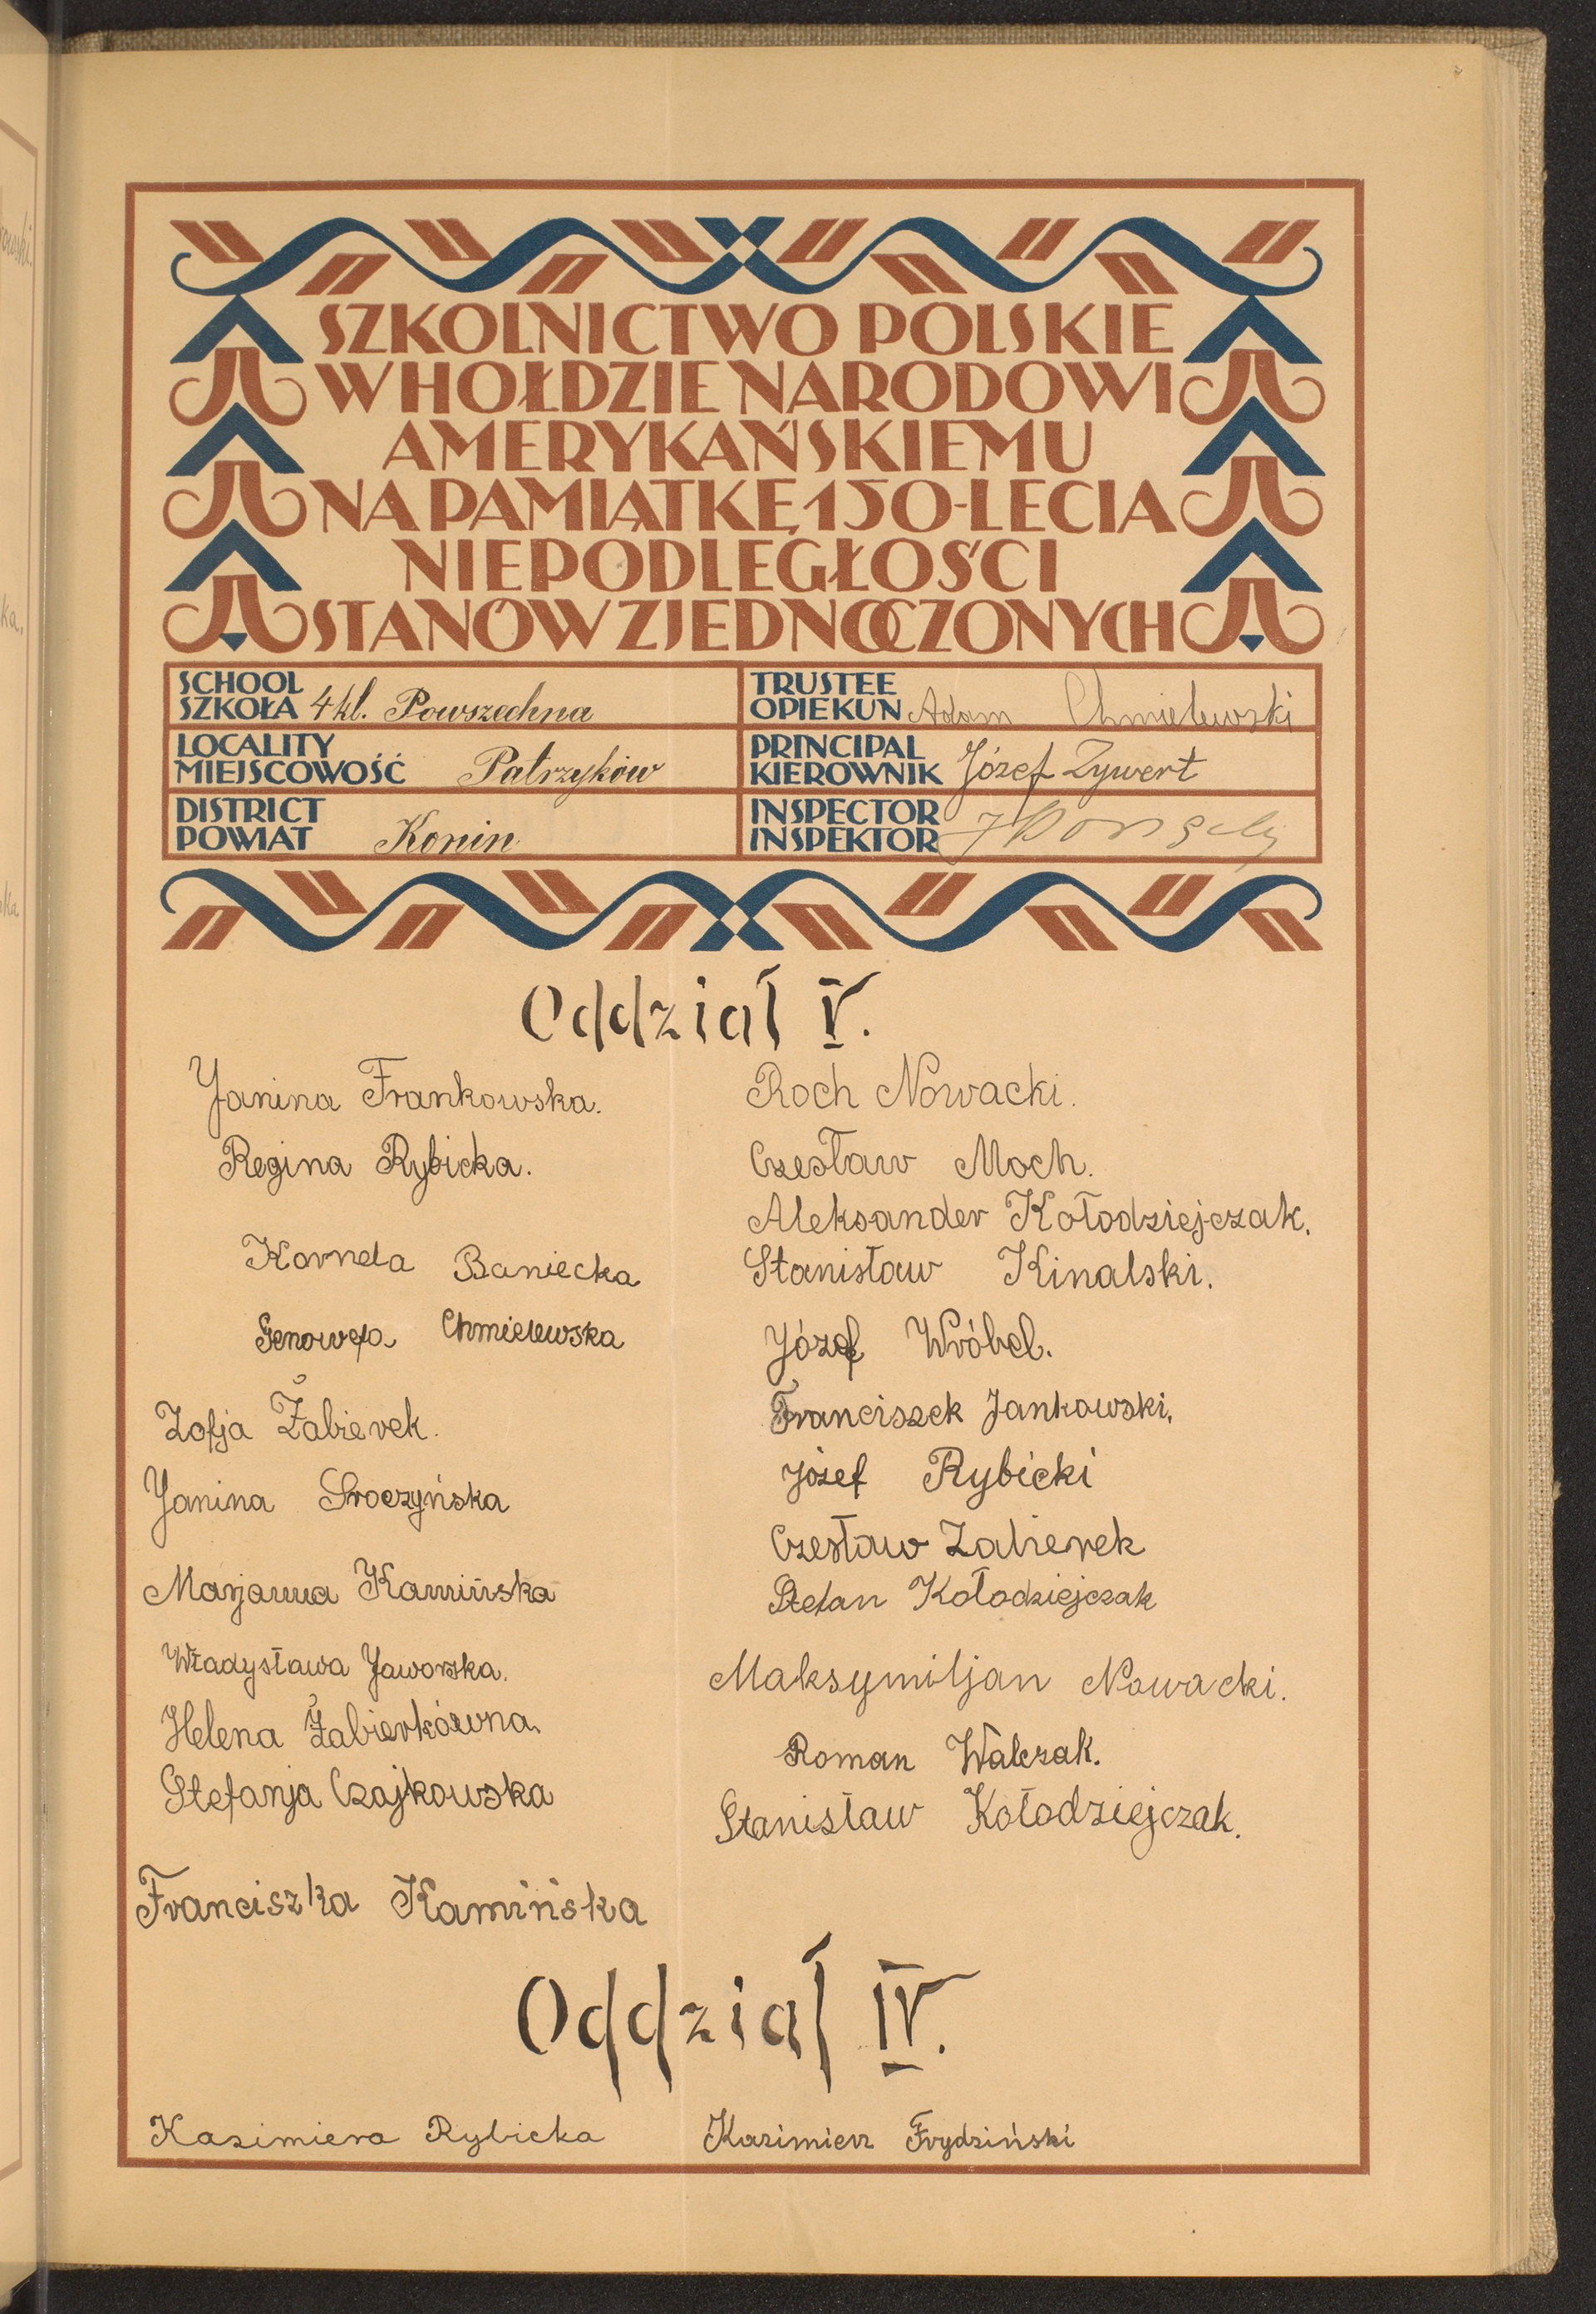 SZKOLNICTWO POLSKIE
W HOŁDZIE NARODOWI
AMERYKAŃSKIEMU
NA PAMIĄTKĘ 150-LECIA
NIEPODLEGŁOŚCI
STANÓW ZJEDNOCZONYCH
SCHOOL
SZKOŁA 4 kl. Powszechna
LOCALITY
MIEJSCOWOŚĆ Patrzyków
DISTRICT
POWIAT Konin
TRUSTEE
OPIEKUN Adam Chmielewski
PRINCIPAL
KIEROWNIK Józef Zywert
INSPECTOR
INSPEKTOR
Oddział V.
Janina Frankowska.
Regina Rybicka.
Kornela Baniecka
Genowefa Chmielewska
Zofja Żabierek.
Janina Sroczyńska
Marjanna Kamińska
Władysława Jaworska.
Helena Żabierkówna.
Stefanja Czajkowska
Franciszka Kamińska
Roch Nowacki.
Czesław Moch.
Aleksander Kołodziejczak.
Stanisław Kinalski.
Józef Wróbel.
Franciszek Jankowski.
Józef Rybicki
Czesław Zabierek
Stefan Kołodziejczak
Maksymiljan Nowacki.
Roman Walczak.
Stanisław Kołodziejczak.
Oddział IV.
Kazimiera Rybicka
Kazimierz Frydziński